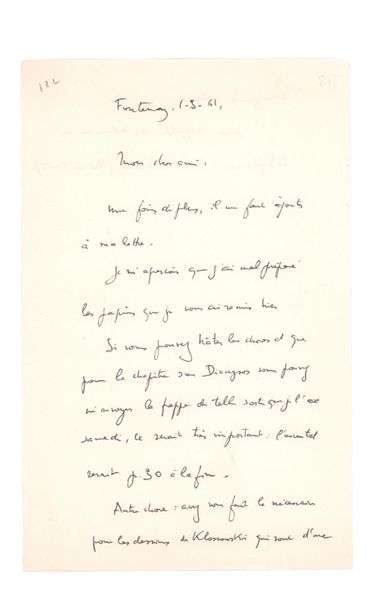 122
Fontenay. 1-3-61,
Mon cher ami.
Une fois de plus, il me faut ajouter
à ma lettre.
Je m'aperçois que j'ai mal préparé
les papiers que je vous ai remis hier
Si vous pouvez hâter les choses et que
pour le chapitre sur Dionysos vous pouvez
m'envoyer la frappe de telle sorte que je l'aie
samedi, ce serait très important. l'essentiel
serait p. 30 à la fin.
Autre chose : avez vous fait le nécessaire
pour les dessins de Klossowski qui sont d'une